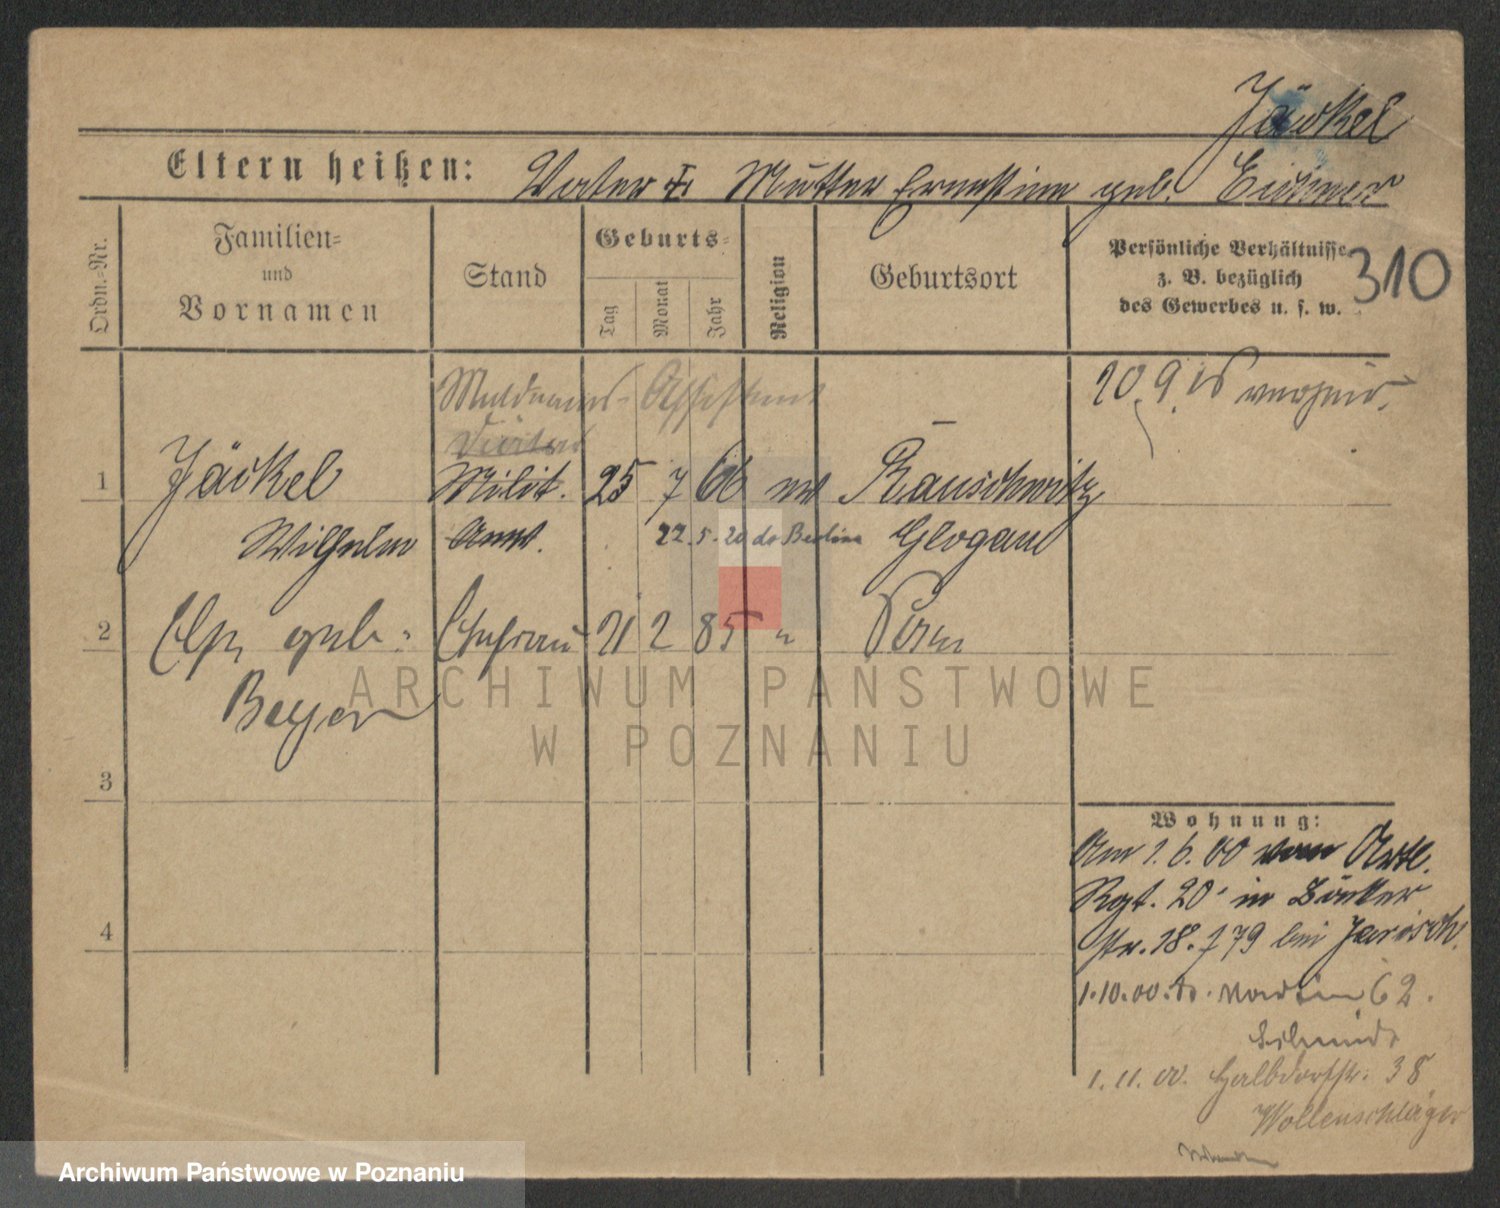 Jäckel
Eltern heißen: Vater † Mutter Ernestine geb.
310
Ordn.-Nr.
Familien-
und
Vornamen
Stand
Geburts-
Tag
Monat
Jahr
Religion
Geburtsort
Persönliche Verhältnisse
z. B. bezüglich
des Gewerbes u. s. w.
Assistent
20. 9.
1 Jäckel Milit. 25 7 66 Rauschwitz
Wilhelm Anw. 22. 5. 20 do Berlin Glogau
2 geb. Ehefrau 21 2 85 " Posen
Beyer
3
4
Wohnung:
Am 1. 6. 00 vom Artl.
Rgt. 20 in
Str. 18. I 79 bei Jarisch.
1. 10. 00. St. Martin 62.
Schmidt
1. 11. 00. Halbdorfstr. 38
Wollenschläger
ARCHIWUM PAŃSTWOWE
W POZNANIU
Archiwum Państwowe w Poznaniu